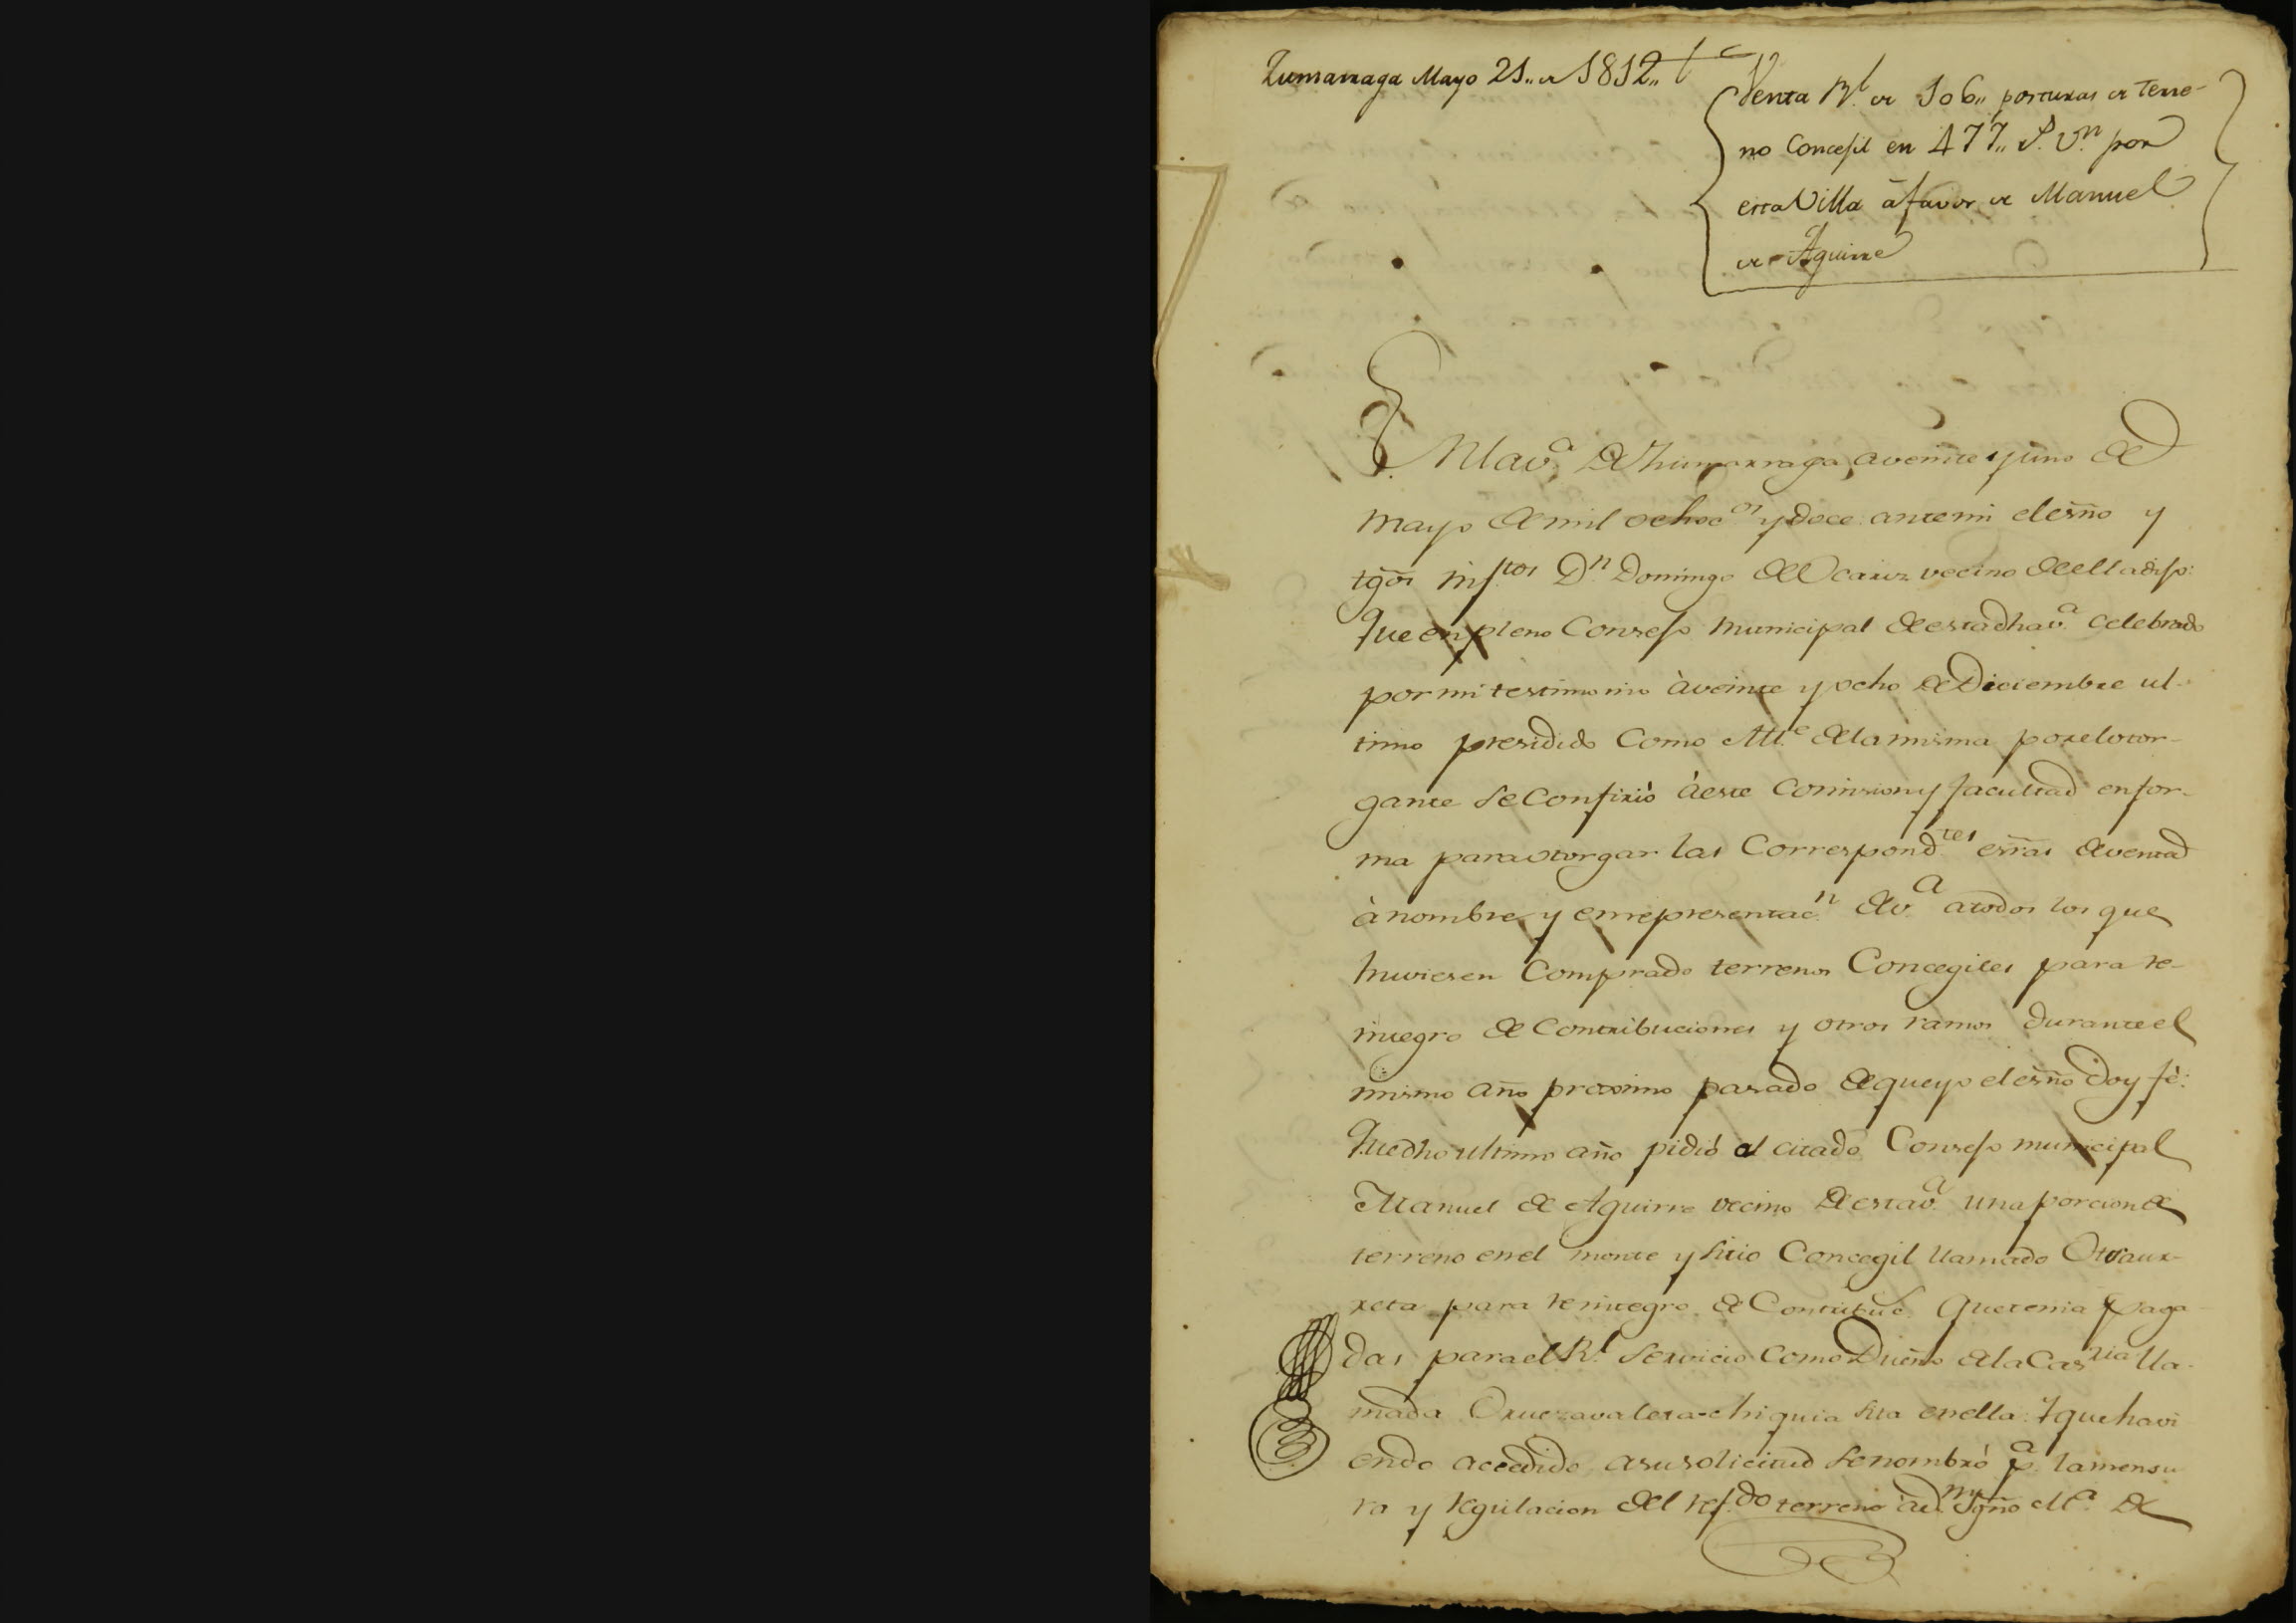 Zumarraga Mayo 21,, de 1812,,
Venta Rl. de 106,, posturas de terre-
no Concejil en 477,, Rs. Vn. por
esta Villa â favor de Manuel
de Aguirre
En la va. de Zumarraga, a veinte y uno de
Mayo de mil ochocos. y doce: ante mi el esño y
tgõs infptos Dn Domingo de Ocariz vecino de ella dijo:
Que en pleno Consejo Municipal de esta dha va. Celebrado
por mi testimonio à veinte y ocho de Diciembre ul-
timo presidido Como Alle. de la misma por el otor-
gante se Confirió à este Comision y facultad en for-
ma para otorgar las Correspondtes esrras de venta
à nombre y en representacn. de va. a todos los que
huviesen Comprado terrenos Concegiles para re-
integro de Contribuciones y otros ramos durante el
mismo año proximo pasado de que yo el esño doy fé:
Que dho ultimo año pidió al citado Consejo municipal
Manuel de Aguirre vecino de esta va. una porcion de
terreno en el monte y sitio Concegil llamado
para reintegro de Contribuc. que tenia paga-
das para el Rl. servicio Como Dueño de la Casria lla-
mada Oruezavaleta-chiquia sita en ella: Y que havi
endo accedido a su solicitud se nombró pa. la mensu
ra y regulacion del refdo terreno à Ygño Ma. de